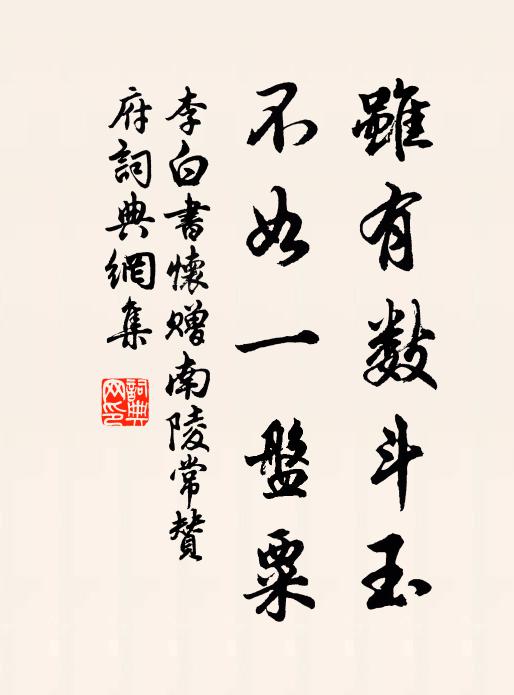 雖有數斗玉
不如一盤粟
李白書懷贈南陵常贊
府詞典網集
詞典网印